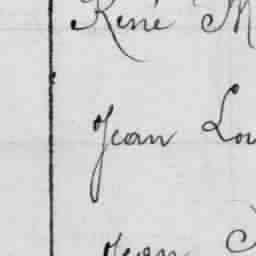 René M
Jean Lou
Jean